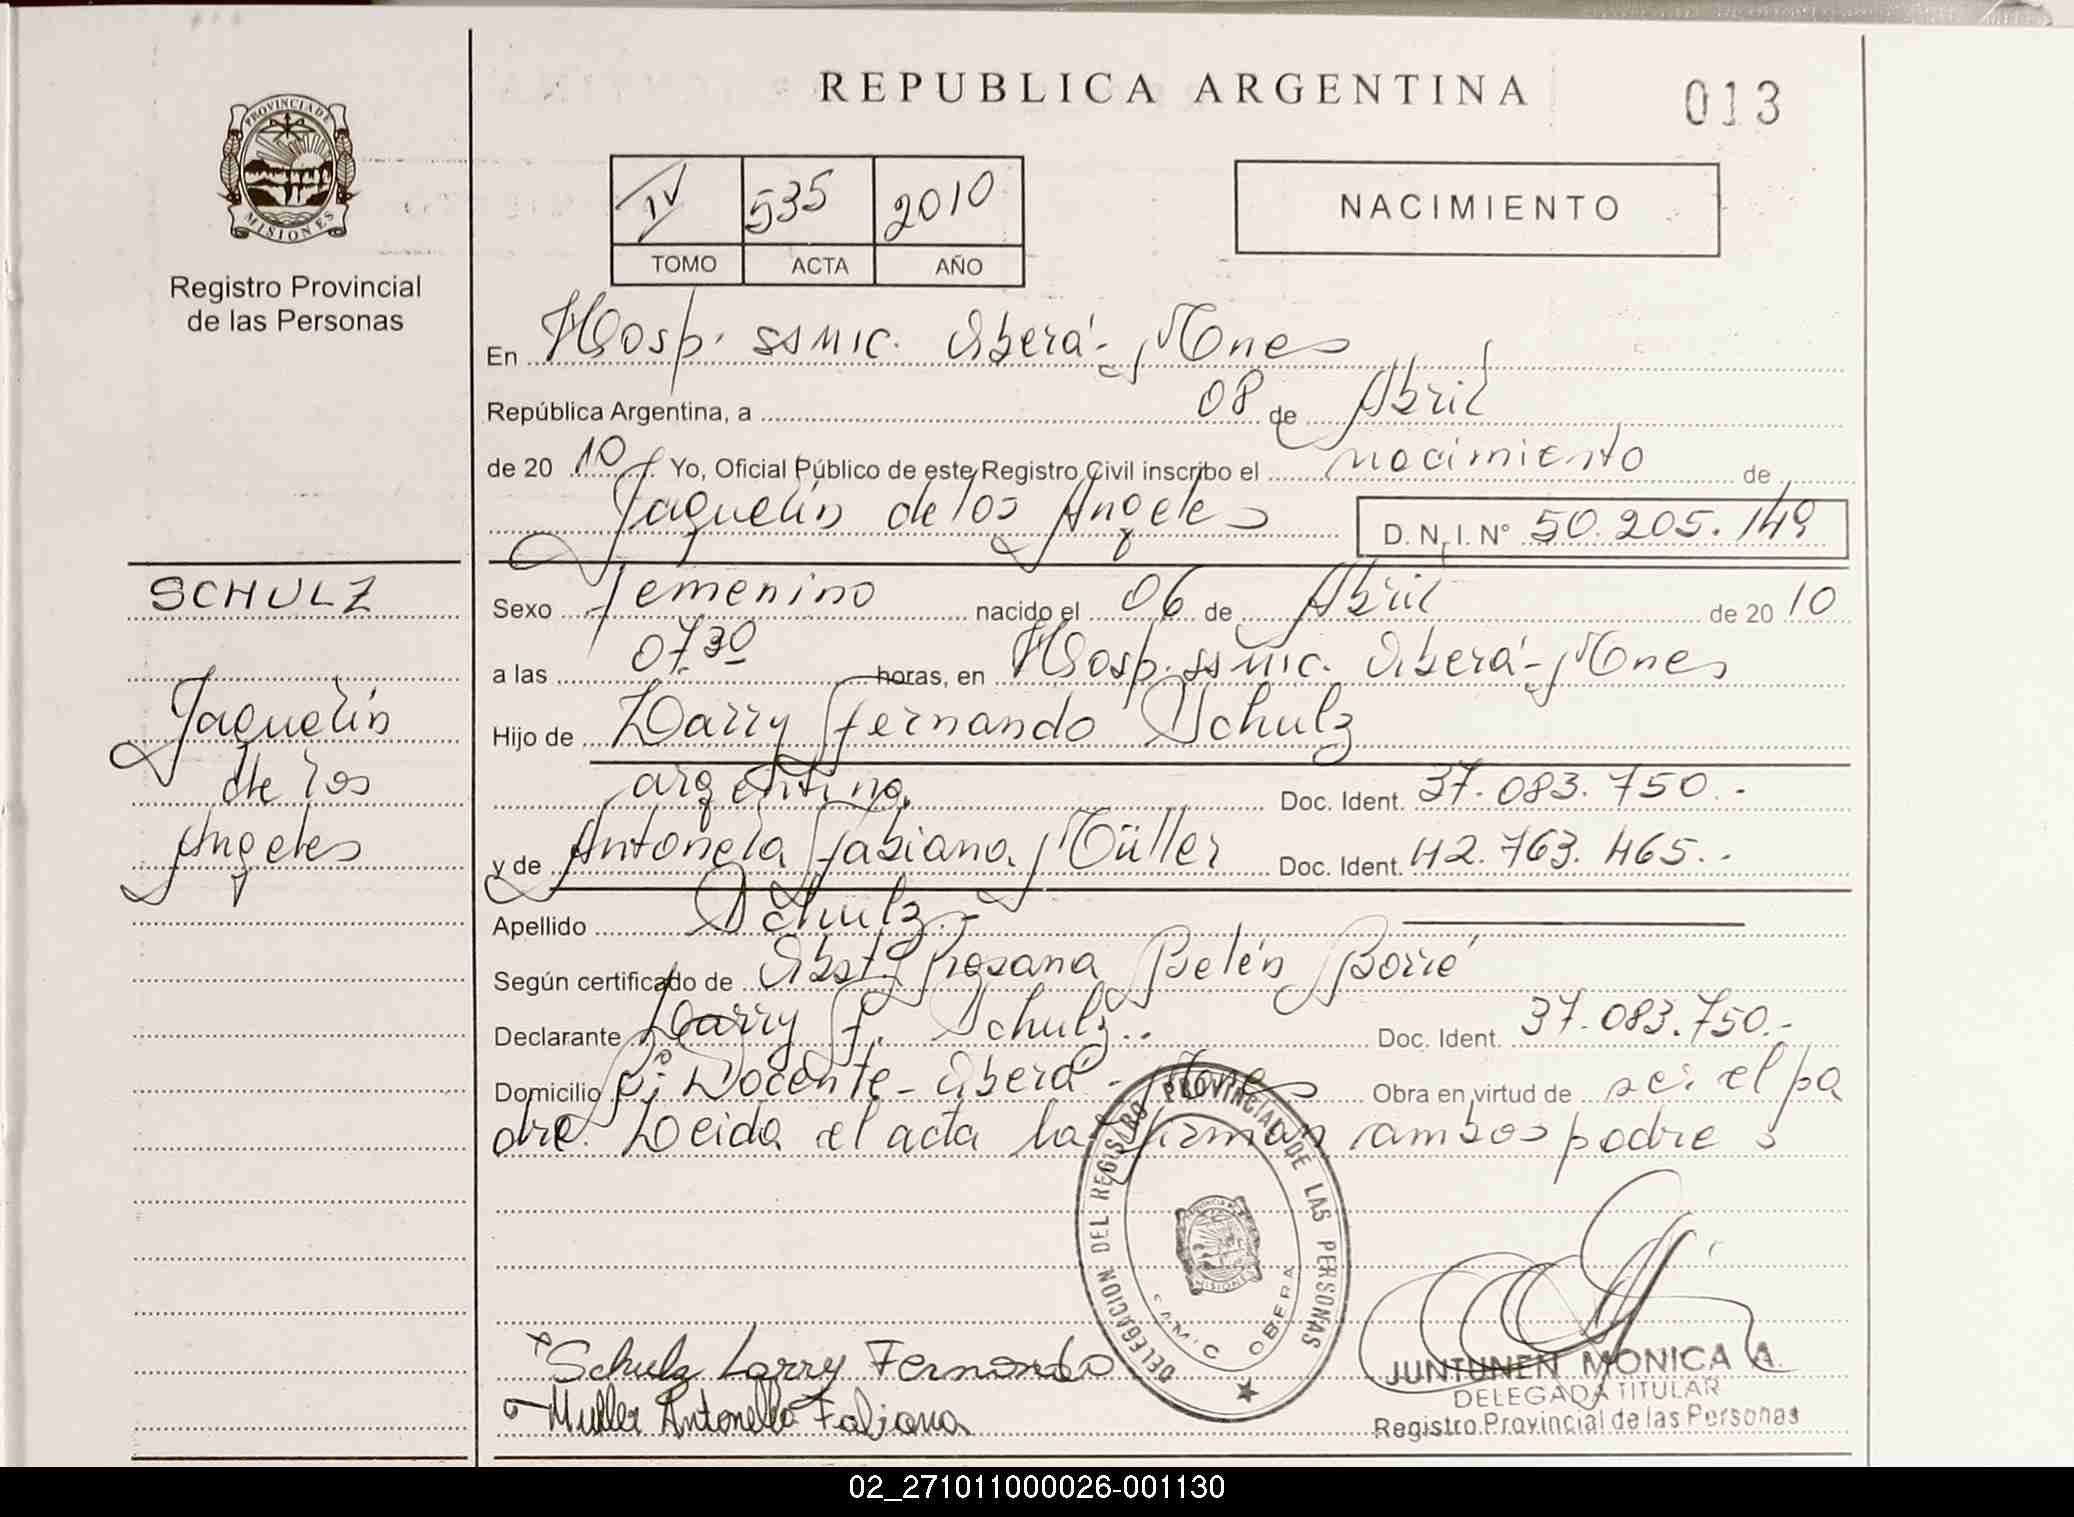 REPUBLICA ARGENTINA
013
PROVINCIA DE MISIONES
Registro Provincial
de las Personas
IV 535 2010
TOMO ACTA AÑO
NACIMIENTO
En Hosp. SAMIC. Oberá - Mnes
República Argentina, a 08 de Abril
de 20 10 Yo, Oficial Público de este Registro Civil inscribo el nacimiento de
Jaquelin de los Angeles D. N. I. N° 50.205.149
SCHULZ
Jaquelin
de los
Angeles
Sexo femenino nacido el 06 de Abril de 20 10
a las 07.30 horas, en Hosp. SAMIC. Oberá - Mnes
Hijo de Larry Fernando Schulz
argentina Doc. Ident. 37.083.750.-
y de Antonela Fabiana Müller Doc. Ident. 42.763.465.-
Apellido Schulz.-
Según certificado de Obst. Rosana Belén Borré
Declarante Larry F. Schulz.. Doc. Ident. 37.083.750.-
Domicilio Docente - Oberá - Mnes Obra en virtud de ser el pa
dre. Leida el acta la firman ambos padres
DELEGACION DEL REGISTRO PROVINCIAL DE LAS PERSONAS
SAMIC OBERA
MISIONES
Schulz Larry Fernando
Muller Antonella Fabiana
JUNTUNEN MONICA A.
DELEGADA TITULAR
Registro Provincial de las Personas
02_271011000026-001130